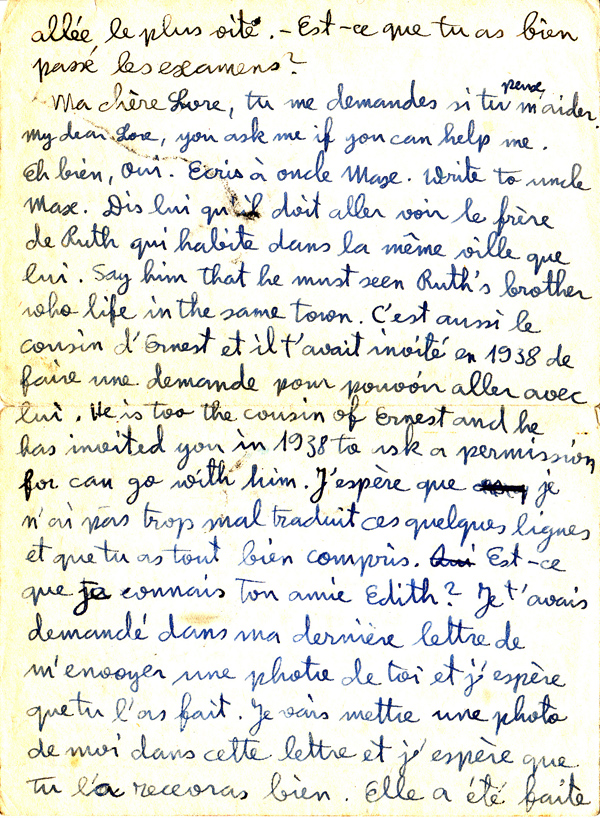 allée le plus vite. - Est-ce que tu as bien
passé les examens?
Ma chère Lore, tu me demandes si tu peux m'aider.
My dear Lore, you ask me if you can help me.
Eh bien, oui. Ecris à oncle Max. Write to uncle
Max. Dis lui qu'il doit aller voir le frère
de Ruth qui habite dans la même ville que
lui. Say him that he must seen Ruth's brother
who life in the same town. C'est aussi le
cousin d'Ernest et il t'avait invité en 1938 de
faire une demande pour pouvoir aller avec
lui. He is too the cousin of Ernest and he
has invited you in 1938 to ask a permission
for can go with him. J'espère que je
n'ai pas trop mal traduit ces quelques lignes
et que tu as tout bien compris. Est-ce
que je connais ton amie Edith? Je t'avais
demandé dans ma dernière lettre de
m'envoyer une photo de toi et j'espère
que tu l'as fait. Je vais mettre une photo
de moi dans cette lettre et j'espère que
tu la recevras bien. Elle a été faite